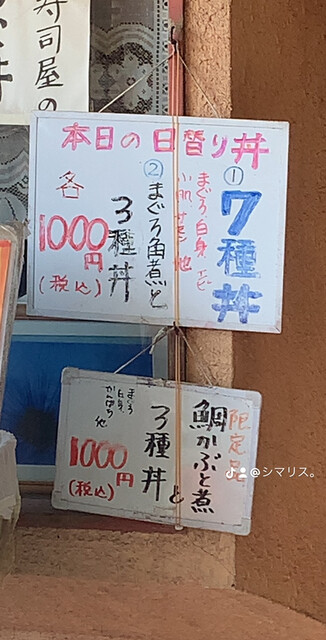 寿司屋の
丼
本日の日替り丼
①
7種丼
まぐろ 白身 エビ
小肌 サーモン 他
②まぐろ角煮と
3種丼
各
1000
円
(税込)
限定
鯛かぶと煮
と
3種丼
まぐろ
白身
かんぱち 他
1000
円
(税込)
@シマリス。